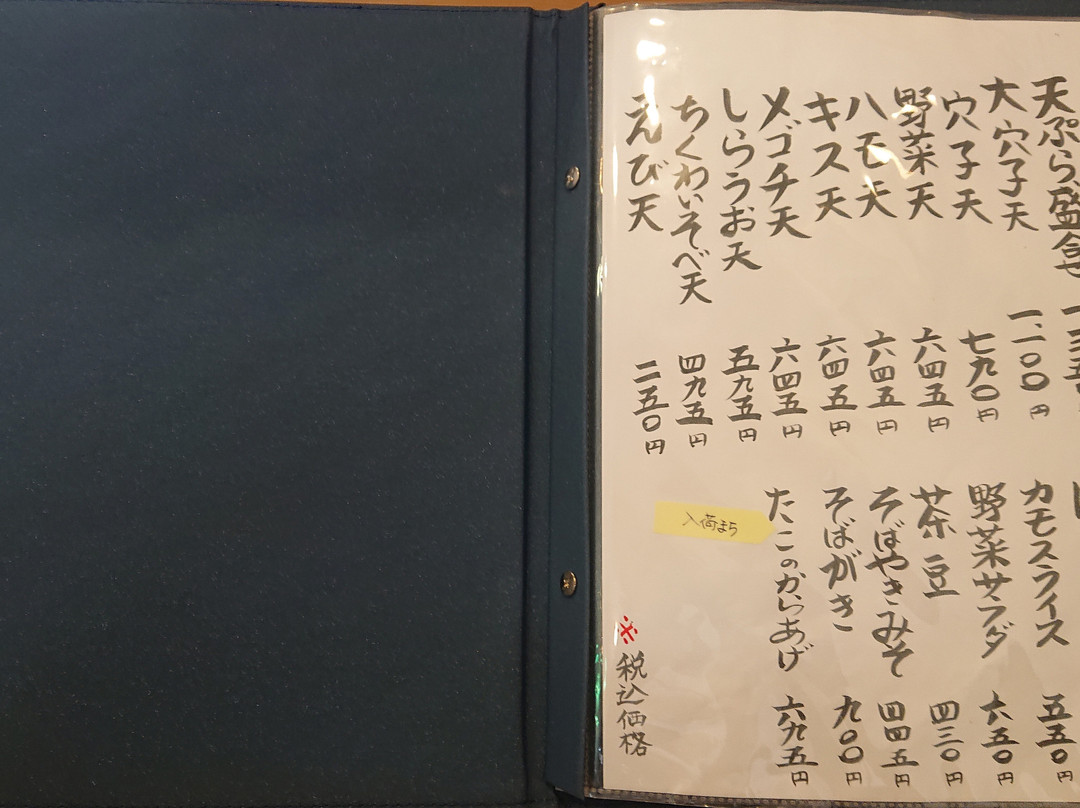 天ぷら盛合せ
大穴子天 一、一〇〇円
穴子天 七九〇円
野菜天 六四五円
ハモ天 六四五円
キス天 六四五円
メゴチ天 六四五円
しらうお天 五九五円
ちくわいそべ天 四九五円
えび天 二五〇円
カモスライス 五五〇円
野菜サラダ 六五〇円
茶豆 四三〇円
そばやきみそ 四四五円
そばがき 九〇〇円
たこのからあげ 六九五円
入荷まち
※税込価格